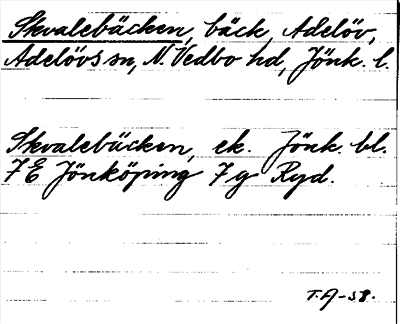 Skvalebäcken, bäck, Adelöv,
Adelövs sn, N. Vedbo hd, Jönk. l.
Skvalebäcken, ek. Jönk. bl.
7E Jönköping 7g Ryd.
T.A-58.